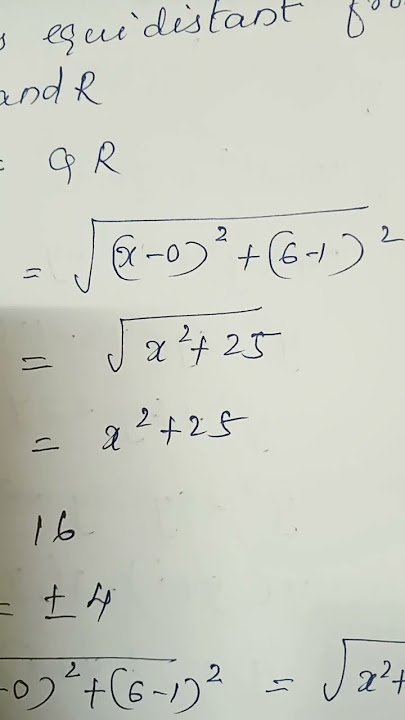 s equidistant fro
and R
= QR
= √(x-0)² + (6-1)²
= √x² + 25
= x² + 25
16
= ± 4
-0)² + (6-1)² = √x² +